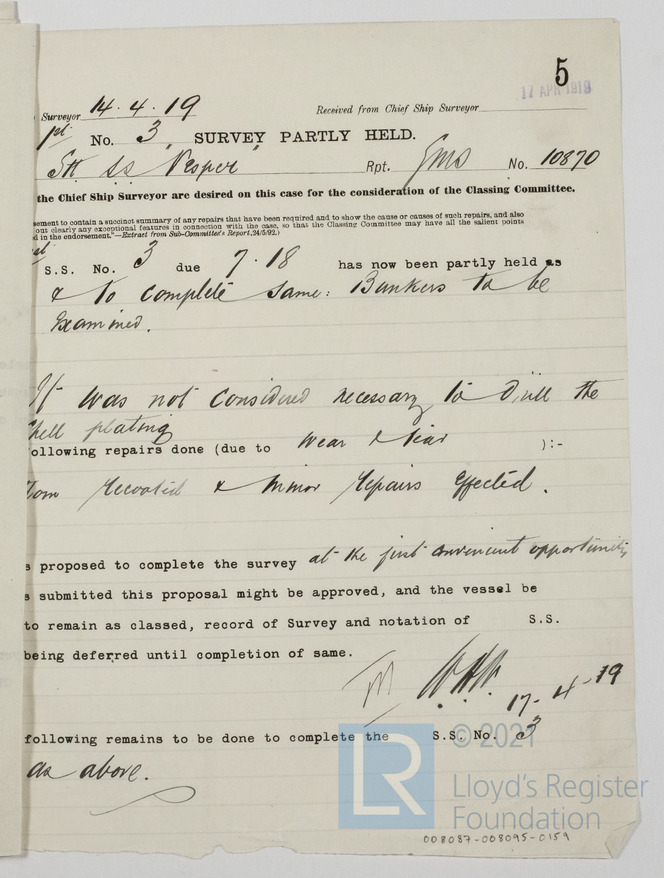 5
17 APR 1919
Surveyor 14.4.19 Received from Chief Ship Surveyor
No. 3 SURVEY PARTLY HELD.
SS "Vesper" Rpt. Gms No. 10870
the Chief Ship Surveyor are desired on this case for the consideration of the Classing Committee.
sement to contain a succinct summary of any repairs that have been required and to show the cause or causes of such repairs, and also
out clearly any exceptional features in connection with the case, so that the Classing Committee may have all the salient points
d in the endorsement."—Extract from Sub-Committee's Report, 24/5/92.)
S.S. No. 3 due 7.18 has now been partly held as
& to complete same: Bunkers to be
Examined.
It was not considered necessary to drill the
Shell plating
ollowing repairs done (due to wear & tear ):-
tom recoated & minor repairs effected.
s proposed to complete the survey at the first convenient opportunity
s submitted this proposal might be approved, and the vessel be
to remain as classed, record of Survey and notation of S.S.
being deferred until completion of same.
17-4-19
following remains to be done to complete the S.S. No. 3
as above.
© 2021
LR
Lloyd's Register
Foundation
008087-008095-0159